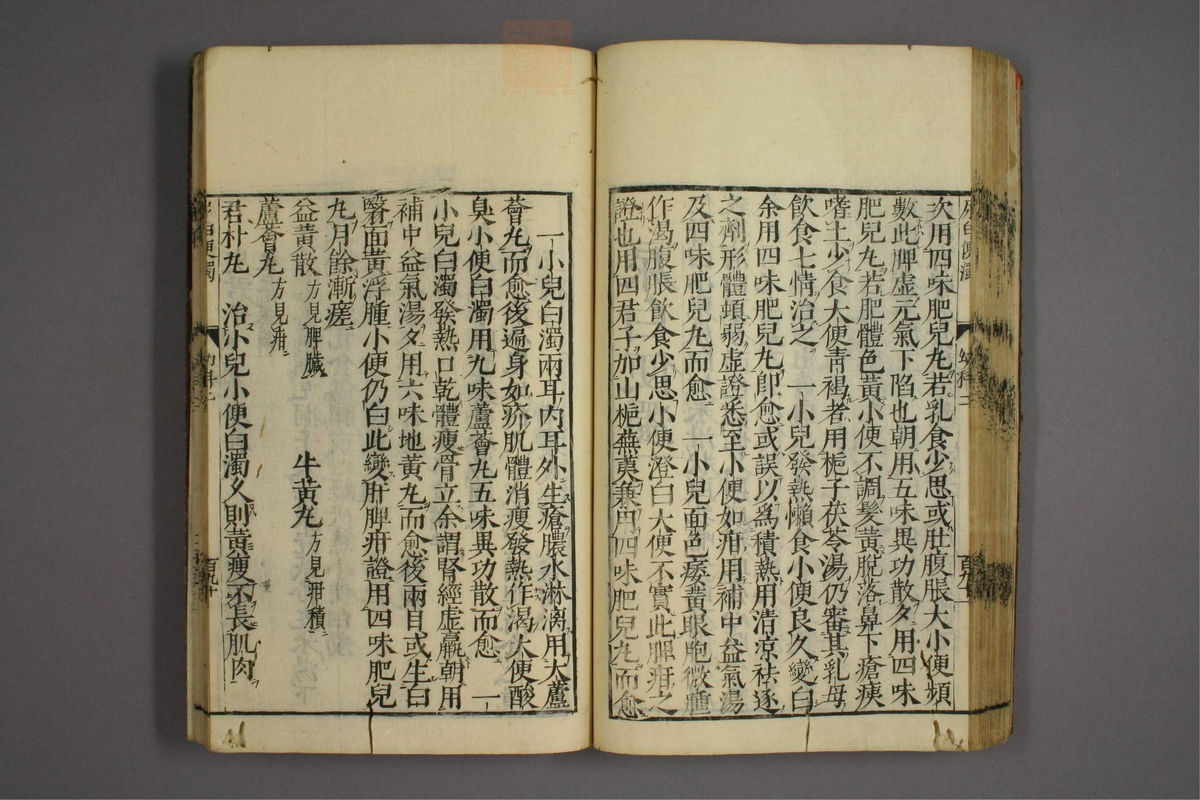 尿白便濁
幼科二
百九十
次用四味肥兒丸若乳食少思或肚腹脹大小便頻
數此脾虛元氣下陷也朝用五味異功散夕用四味
肥兒丸若肥體色黃小便不調髮黃脫落鼻下瘡痍
嗜土少食大便青褐者用梔子茯苓湯仍審其乳母
飲食七情治之　一小兒發熱懶食小便良久變白
余用四味肥兒丸卽愈或誤以爲積熱用清凉祛逐
之劑形體頓弱虛證悉至小便如疳用補中益氣湯
及四味肥兒丸而愈　一小兒面色痿黃眼胞微腫
作渴腹脹飲食少思小便澄白大便不實此脾疳之
證也用四君子加山梔蕪荑兼用四味肥兒丸而愈
一小兒白濁兩耳內耳外生瘡膿水淋漓用大蘆
薈丸而愈後遍身如疥肌體消瘦發熱作渴大便酸
臭小便白濁用九味蘆薈丸五味異功散而愈　一
小兒白濁發熱口乾體瘦骨立余謂腎經虛羸朝用
補中益氣湯夕用六味地黃丸而愈後兩目或生白
瞖面黃浮腫小便仍白此變肝脾疳證用四味肥兒
丸月餘漸瘥
益黃散方見脾臟　牛黃丸方見疳積
蘆薈丸方見疳
君朴丸　治小兒小便白濁久則黃瘦不長肌肉